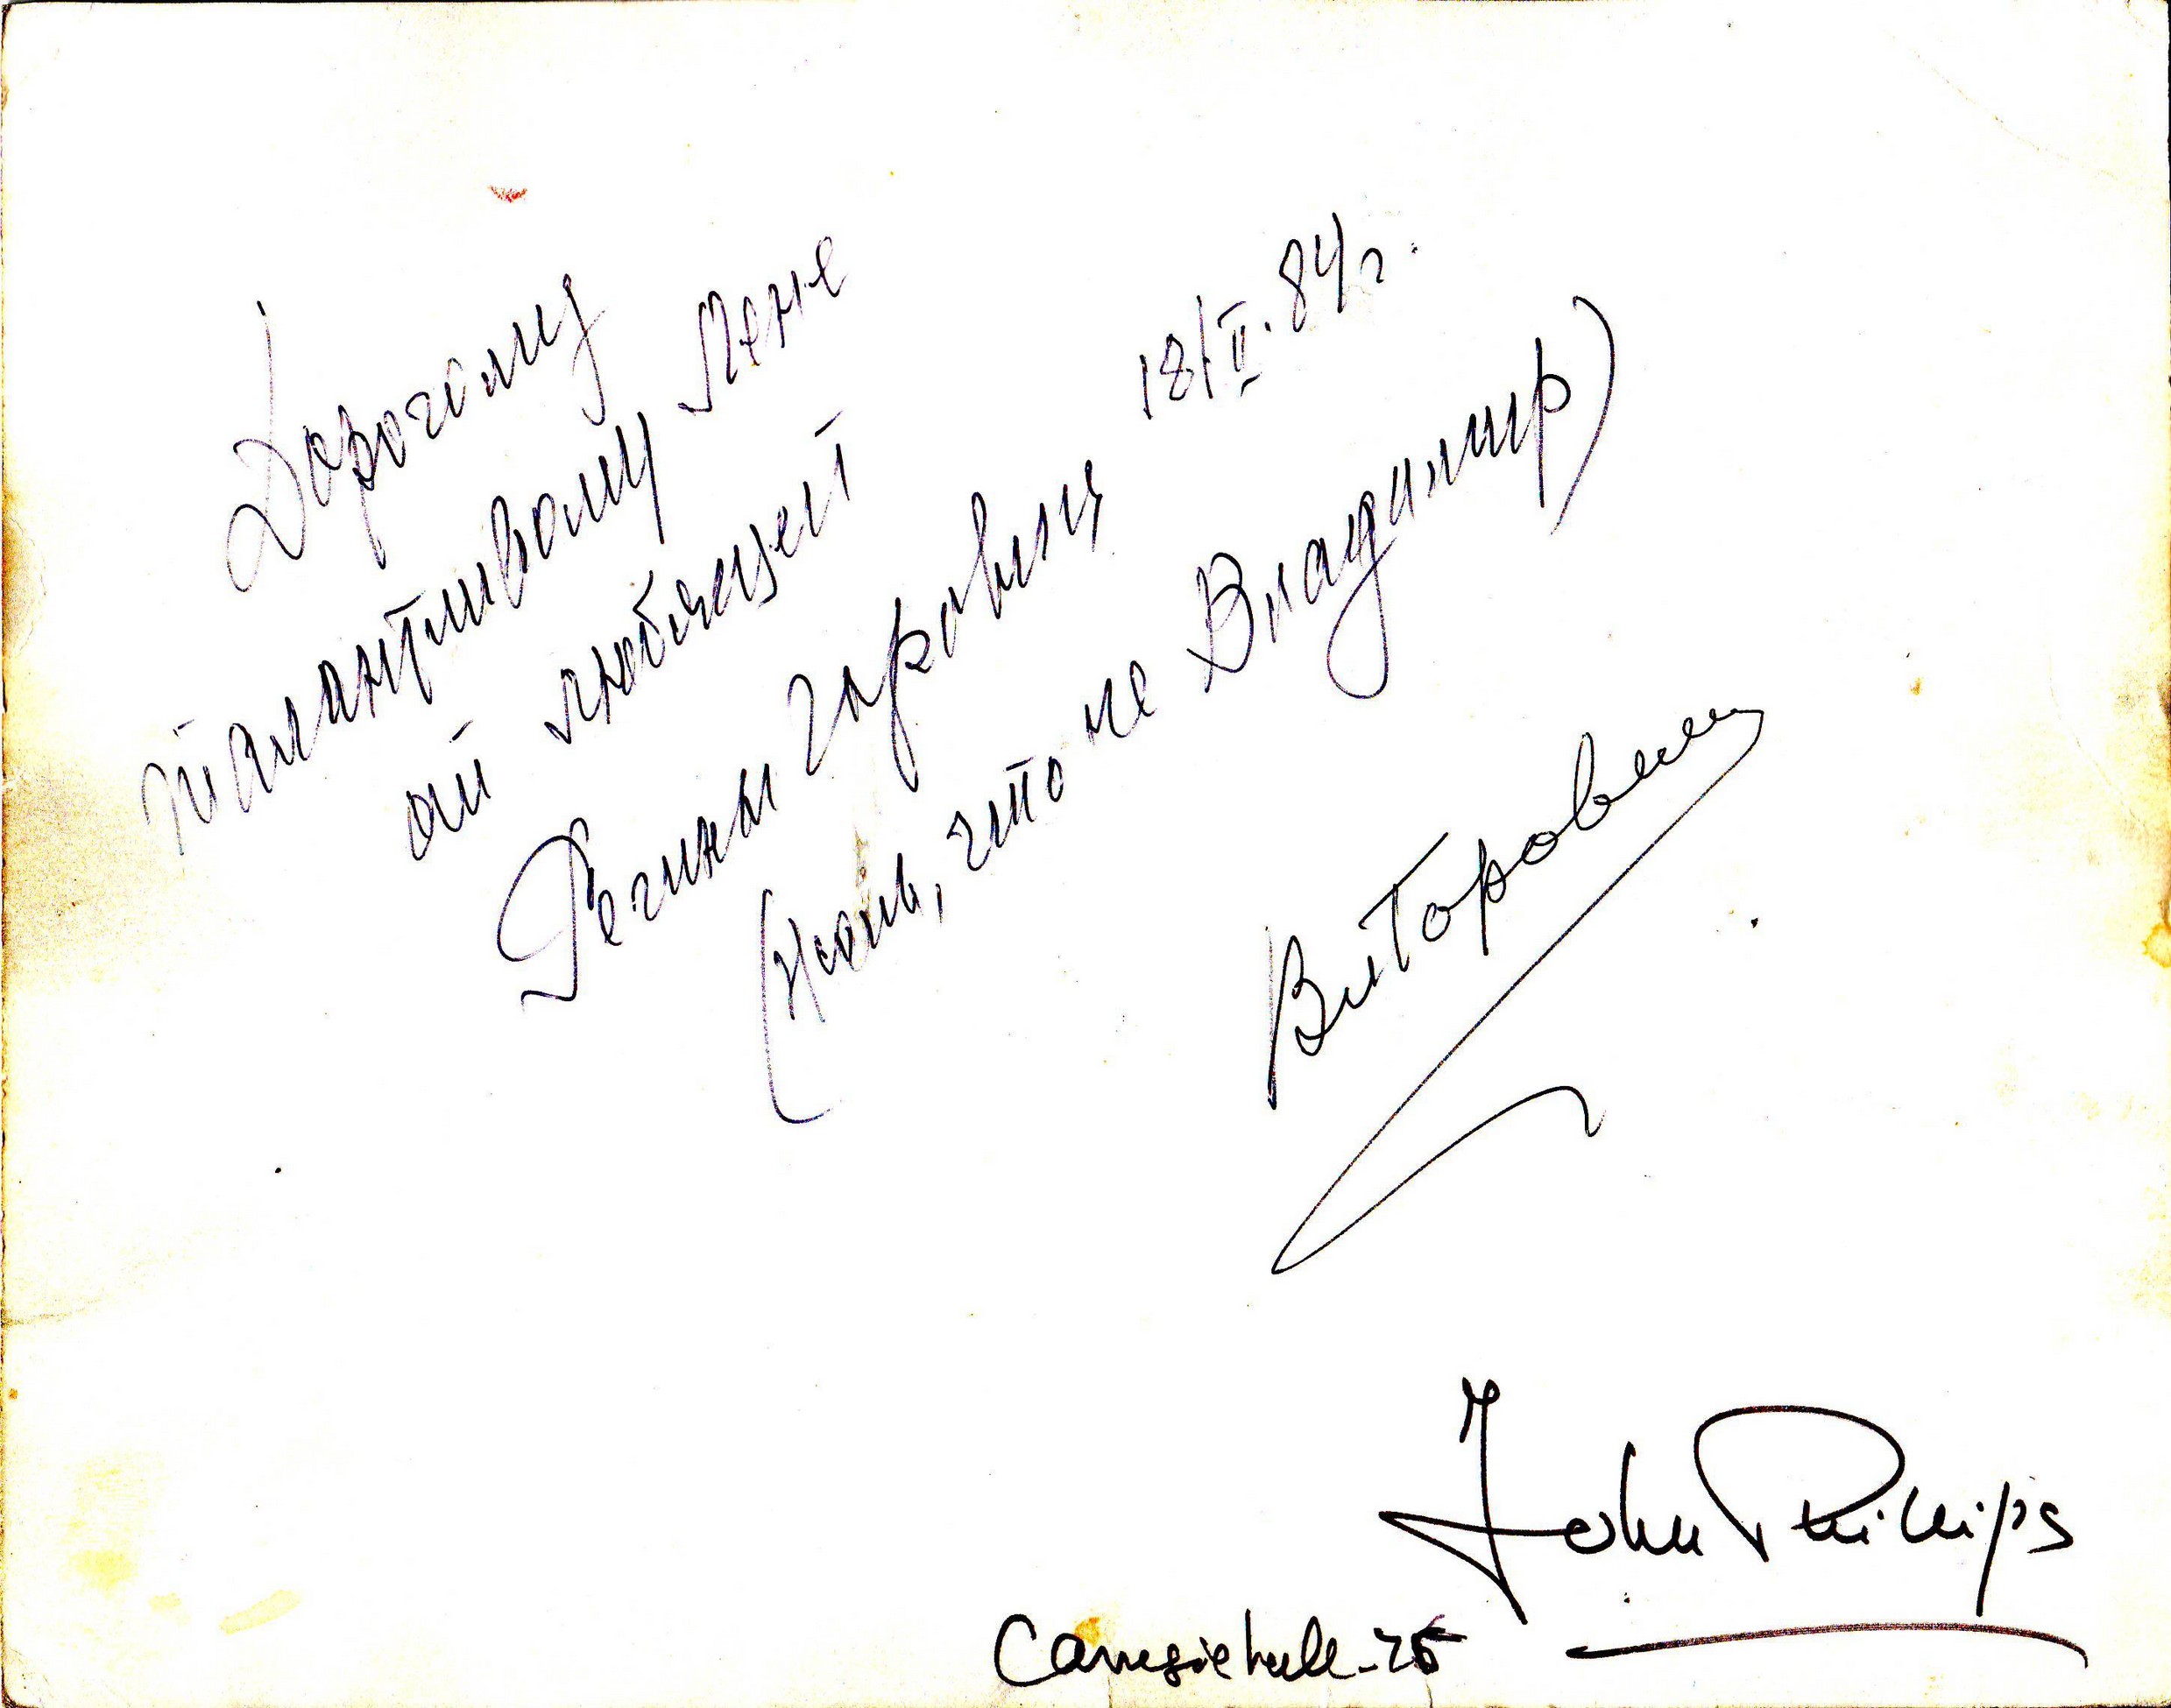 Дорогому
талантливому Лене
от любящей
Регины Горовиц 18/II.84 г.
(жаль, что не Владимир)
ВиТоровиц
John Phillips
Carnegie hall-